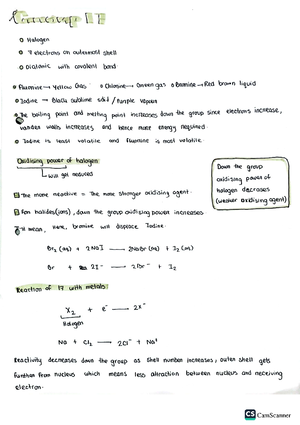 Group 17
Halogen
7 electrons on outermost shell
Diatomic with covalent bond
Fluorine → Yellow Gas Chlorine → Green gas Bromine → Red brown liquid
Iodine → Black sublime solid / Purple vapours
The boiling point and melting point increases down the group since electrons increase,
vander walls increases and hence more energy required.
Iodine is least volatile and fluorine is most volatile
Oxidising power of halogen:
will get reduced
Down the group
oxidising power of
halogen decreases
(weaker oxidising agent)
The more reactive = The more stronger oxidising agent.
For halides(ions), down the group oxidising power increases
It mean, here, bromine will displace Iodine.
Br₂ (aq) + 2NaI → 2NaBr (aq) + I₂ (aq)
Br + 2I⁻ → 2Br⁻ + I₂
Reaction of 17 with metals:
X₂ + e⁻ → 2X⁻
Halogen
Na + Cl₂ → 2Cl⁻ + Na⁺
Reactivity decreases down the group as shell number increases, outer shell gets
further from nucleus which means less attraction between nucleus and receiving
electron.
CS CamScanner